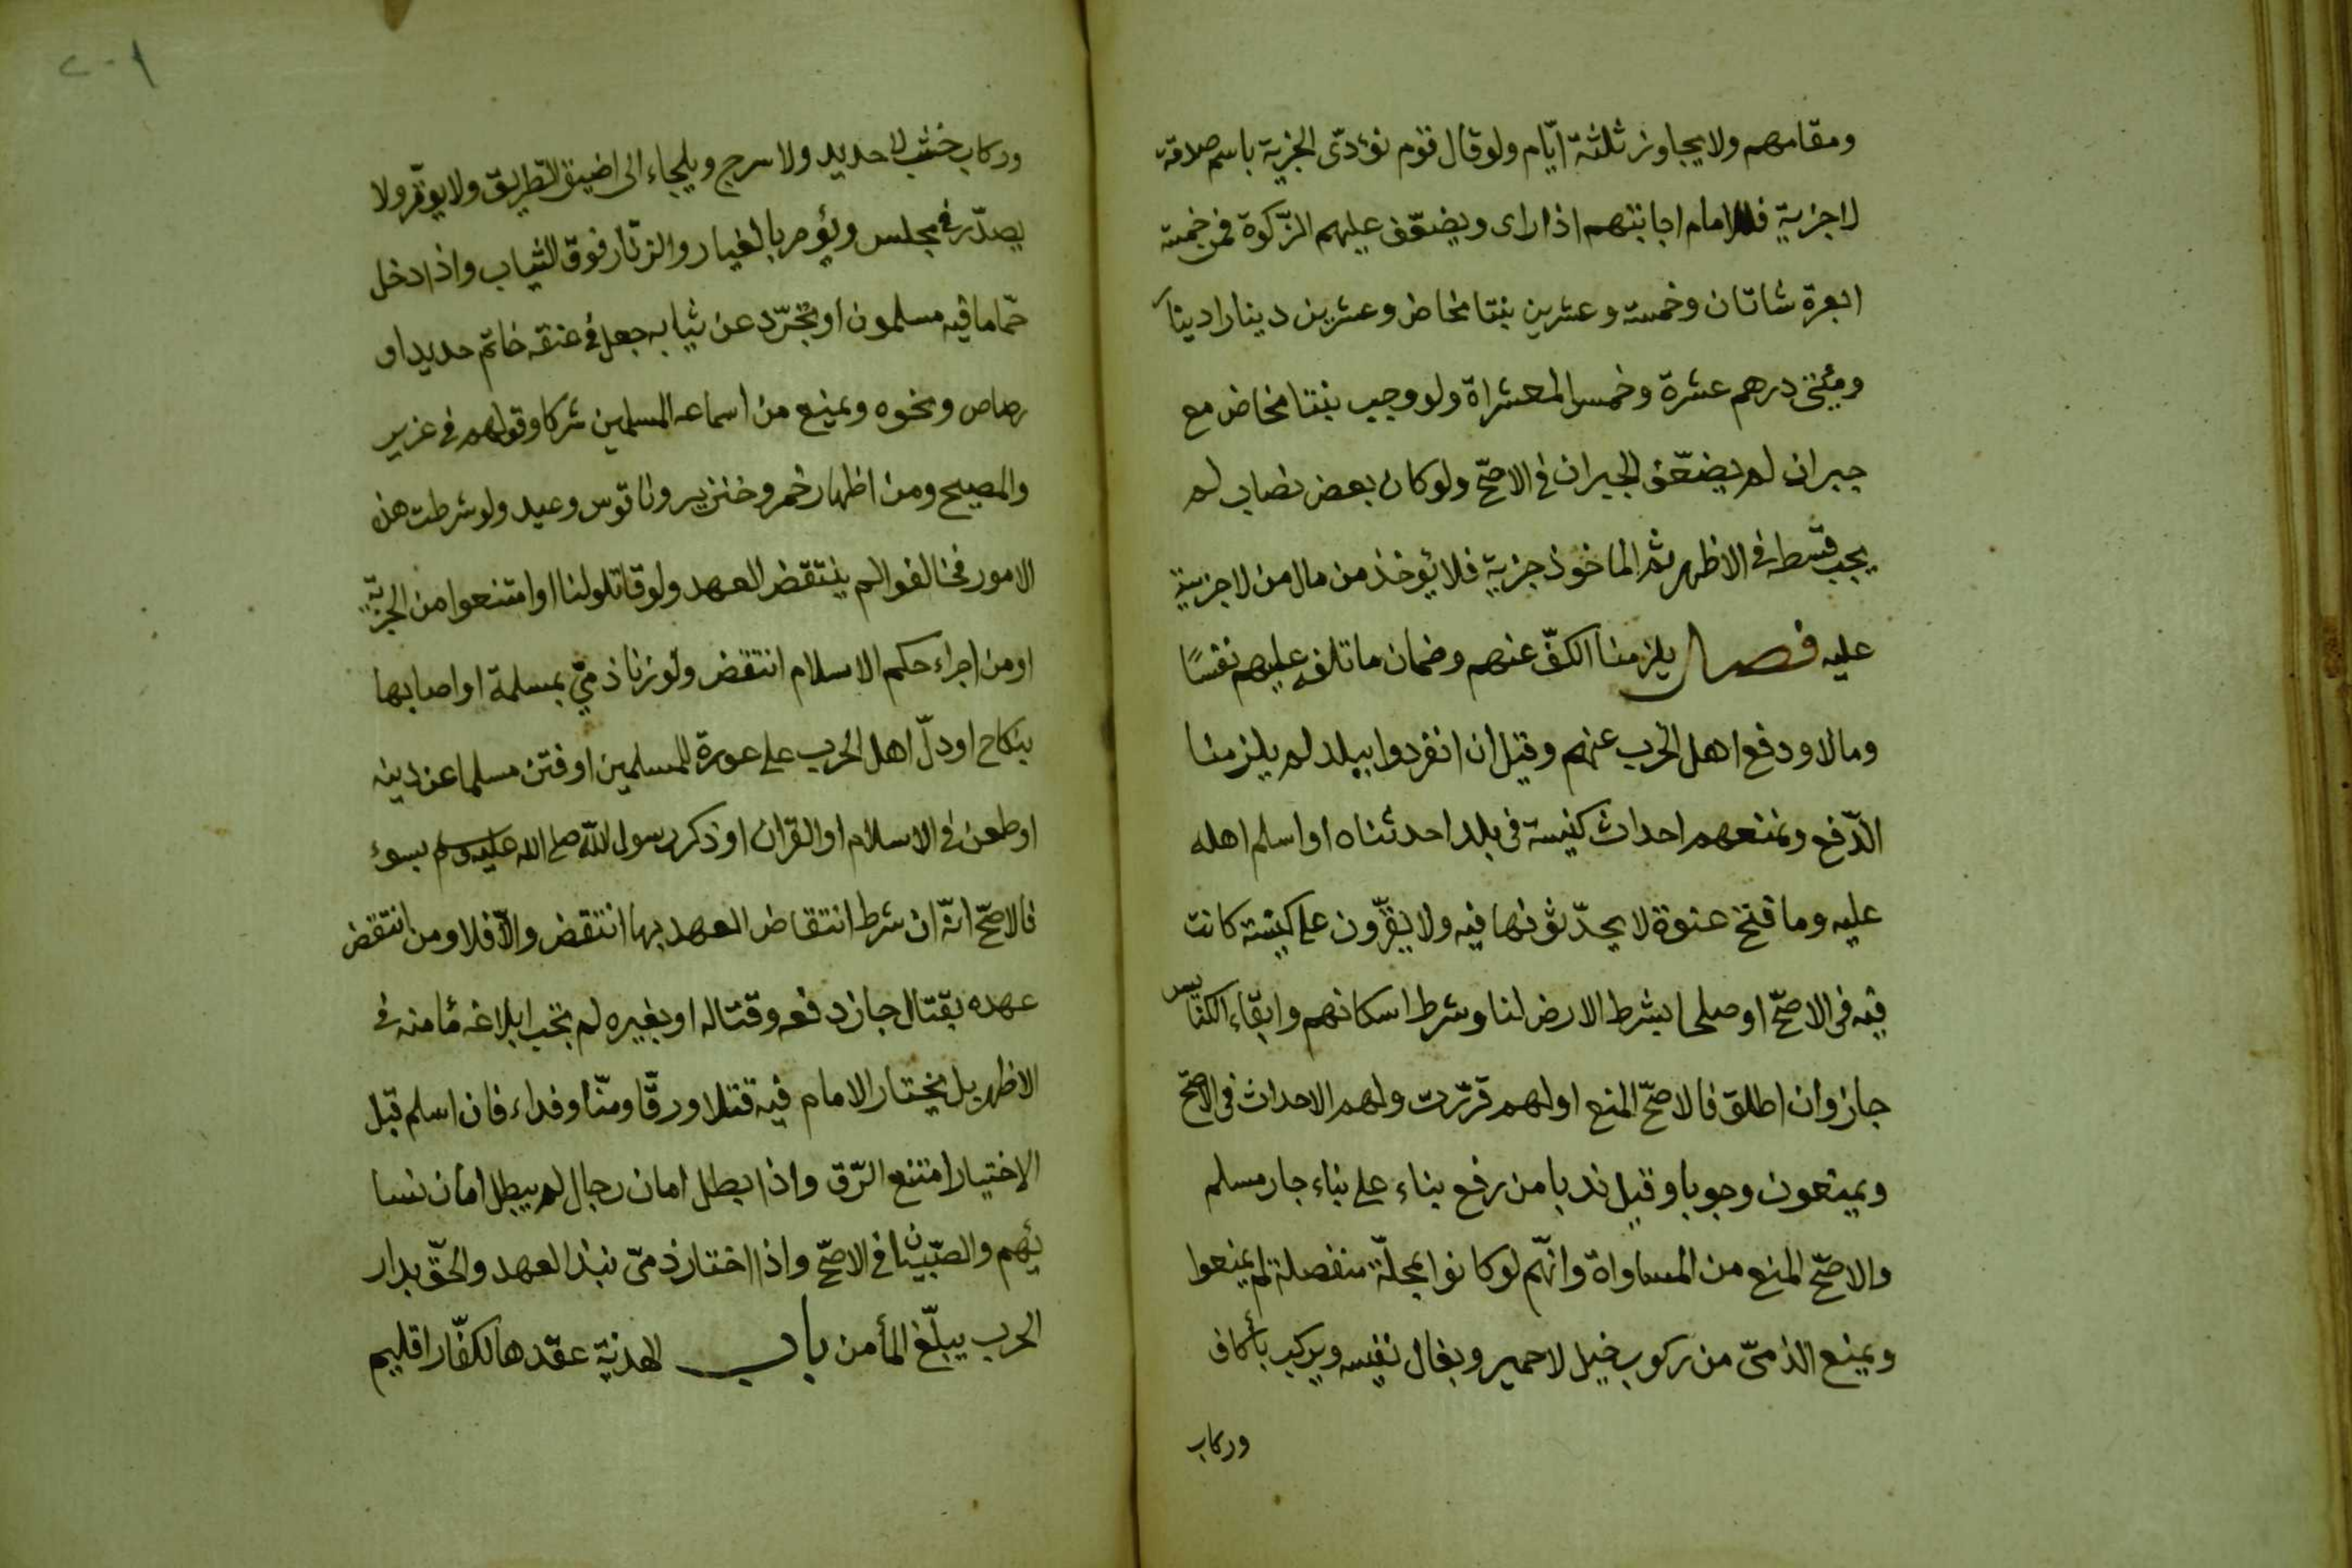 ومقامهم ولا يجاوز ثلثة ايّام ولو قال قوم نؤدّى الجزية باسم صدقة
لا جزية فللامام اجابتهم اذا راى ويضعّف عليهم الزّكوة فمن خمسة
ابعرة شاتان وخمسة وعشرين بنتا مخاض وعشرين دينارا دينار
ومئتى درهم عشرة وخمس المعشراة ولو وجب بنتا مخاض مع
جبران لم يضعّف الجبران فى الاصحّ ولو كان بعض نصاب لم
يجب قسطه فى الاظهر ثم الماخوذ جزية فلا يؤخذ من مال من لا جزية
عليه فصل يلزمنا الكفّ عنهم وضمان ما تلفه عليهم نفسًا
ومالا ودفع اهل الحرب عنهم وقيل ان انفردوا ببلد لم يلزمنا
الدّفع ونمنعهم احداث كنيسة فى بلد احدثناه او اسلم اهله
عليه وما فتح عنوة لا يحدّثونها فيه ولا يقرّون على كنيسة كانت
فيه فى الاصحّ او صلحا بشرط الارض لنا وشرط اسكانهم وابقاء الكنايس
جاز وان اطلق فالاصحّ المنع او لهم قرّرت ولهم الاحداث فى الاصحّ
ويمنعون وجوبا وقيل ندبا من رفع بناء على بناء جار مسلم
والاصحّ المنع من المساواة وانّهم لو كانوا بمحلّة منفصلة لم يمنعوا
ويمنع الذمىّ من ركوب خيل لا حمير وبغال نفيسه ويركب بأكاف
وركاب
٢٠١
وركاب خشب لا حديد ولا سرج ويلجاء الى اضيق الطريق ولا يوقّر ولا
يصدّر فى مجلس ويؤمر بالغيار والزنّار فوق الثياب واذا دخل
حمّاما فيه مسلمون او تجرّد عن ثيابه جعل فى عنقه خاتم حديد او
رصاص ونحوه ويمنع من اسماعه المسلمين شركا وقولهم فى عزير
والمصيح ومن اظهار خمر وخنزير وناقوس وعيد ولو شرطت هذه
الامور فخالفوا لم ينتقض العهد ولو قاتلولنا او امتنعوا من الجزية
او من اجراء حكم الاسلام انتقض ولو زنا ذمىّ بمسلمة او اصابها
بنكاح او دلّ اهل الحرب على عورة للمسلمين او فتن مسلما عن دينه
او طعن فى الاسلام او القران او ذكر رسول اللّه صلى الله عليه وسلم بسوء
فالاصحّ انّه ان شرط انتقاض العهد بها انتقض والّا فلا ومن انتقض
عهده بقتال جاز دفعه وقتاله او بغيره لم تجب ابلاغه مأمنه فى
الاظهر بل يختار الامام فيه قتلا ورقّا ومنّا وفداء فان اسلم قبل
الاختيار امتنع الرّق واذا بطل امان رجال لم يبطل امان نسا
ئهم والصّبيان فى الاصحّ واذا اختار ذمىّ نبذ العهد والحقّ بدار
الحرب يبلّغ المأمن باب الهدنة عقدها لكفّار اقليم